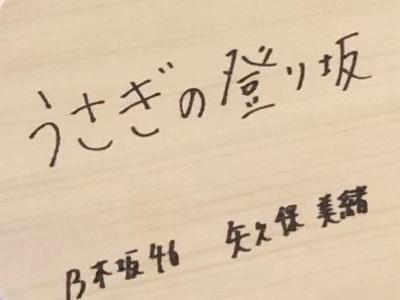 うさぎの登り坂
乃木坂46 矢久保美緒